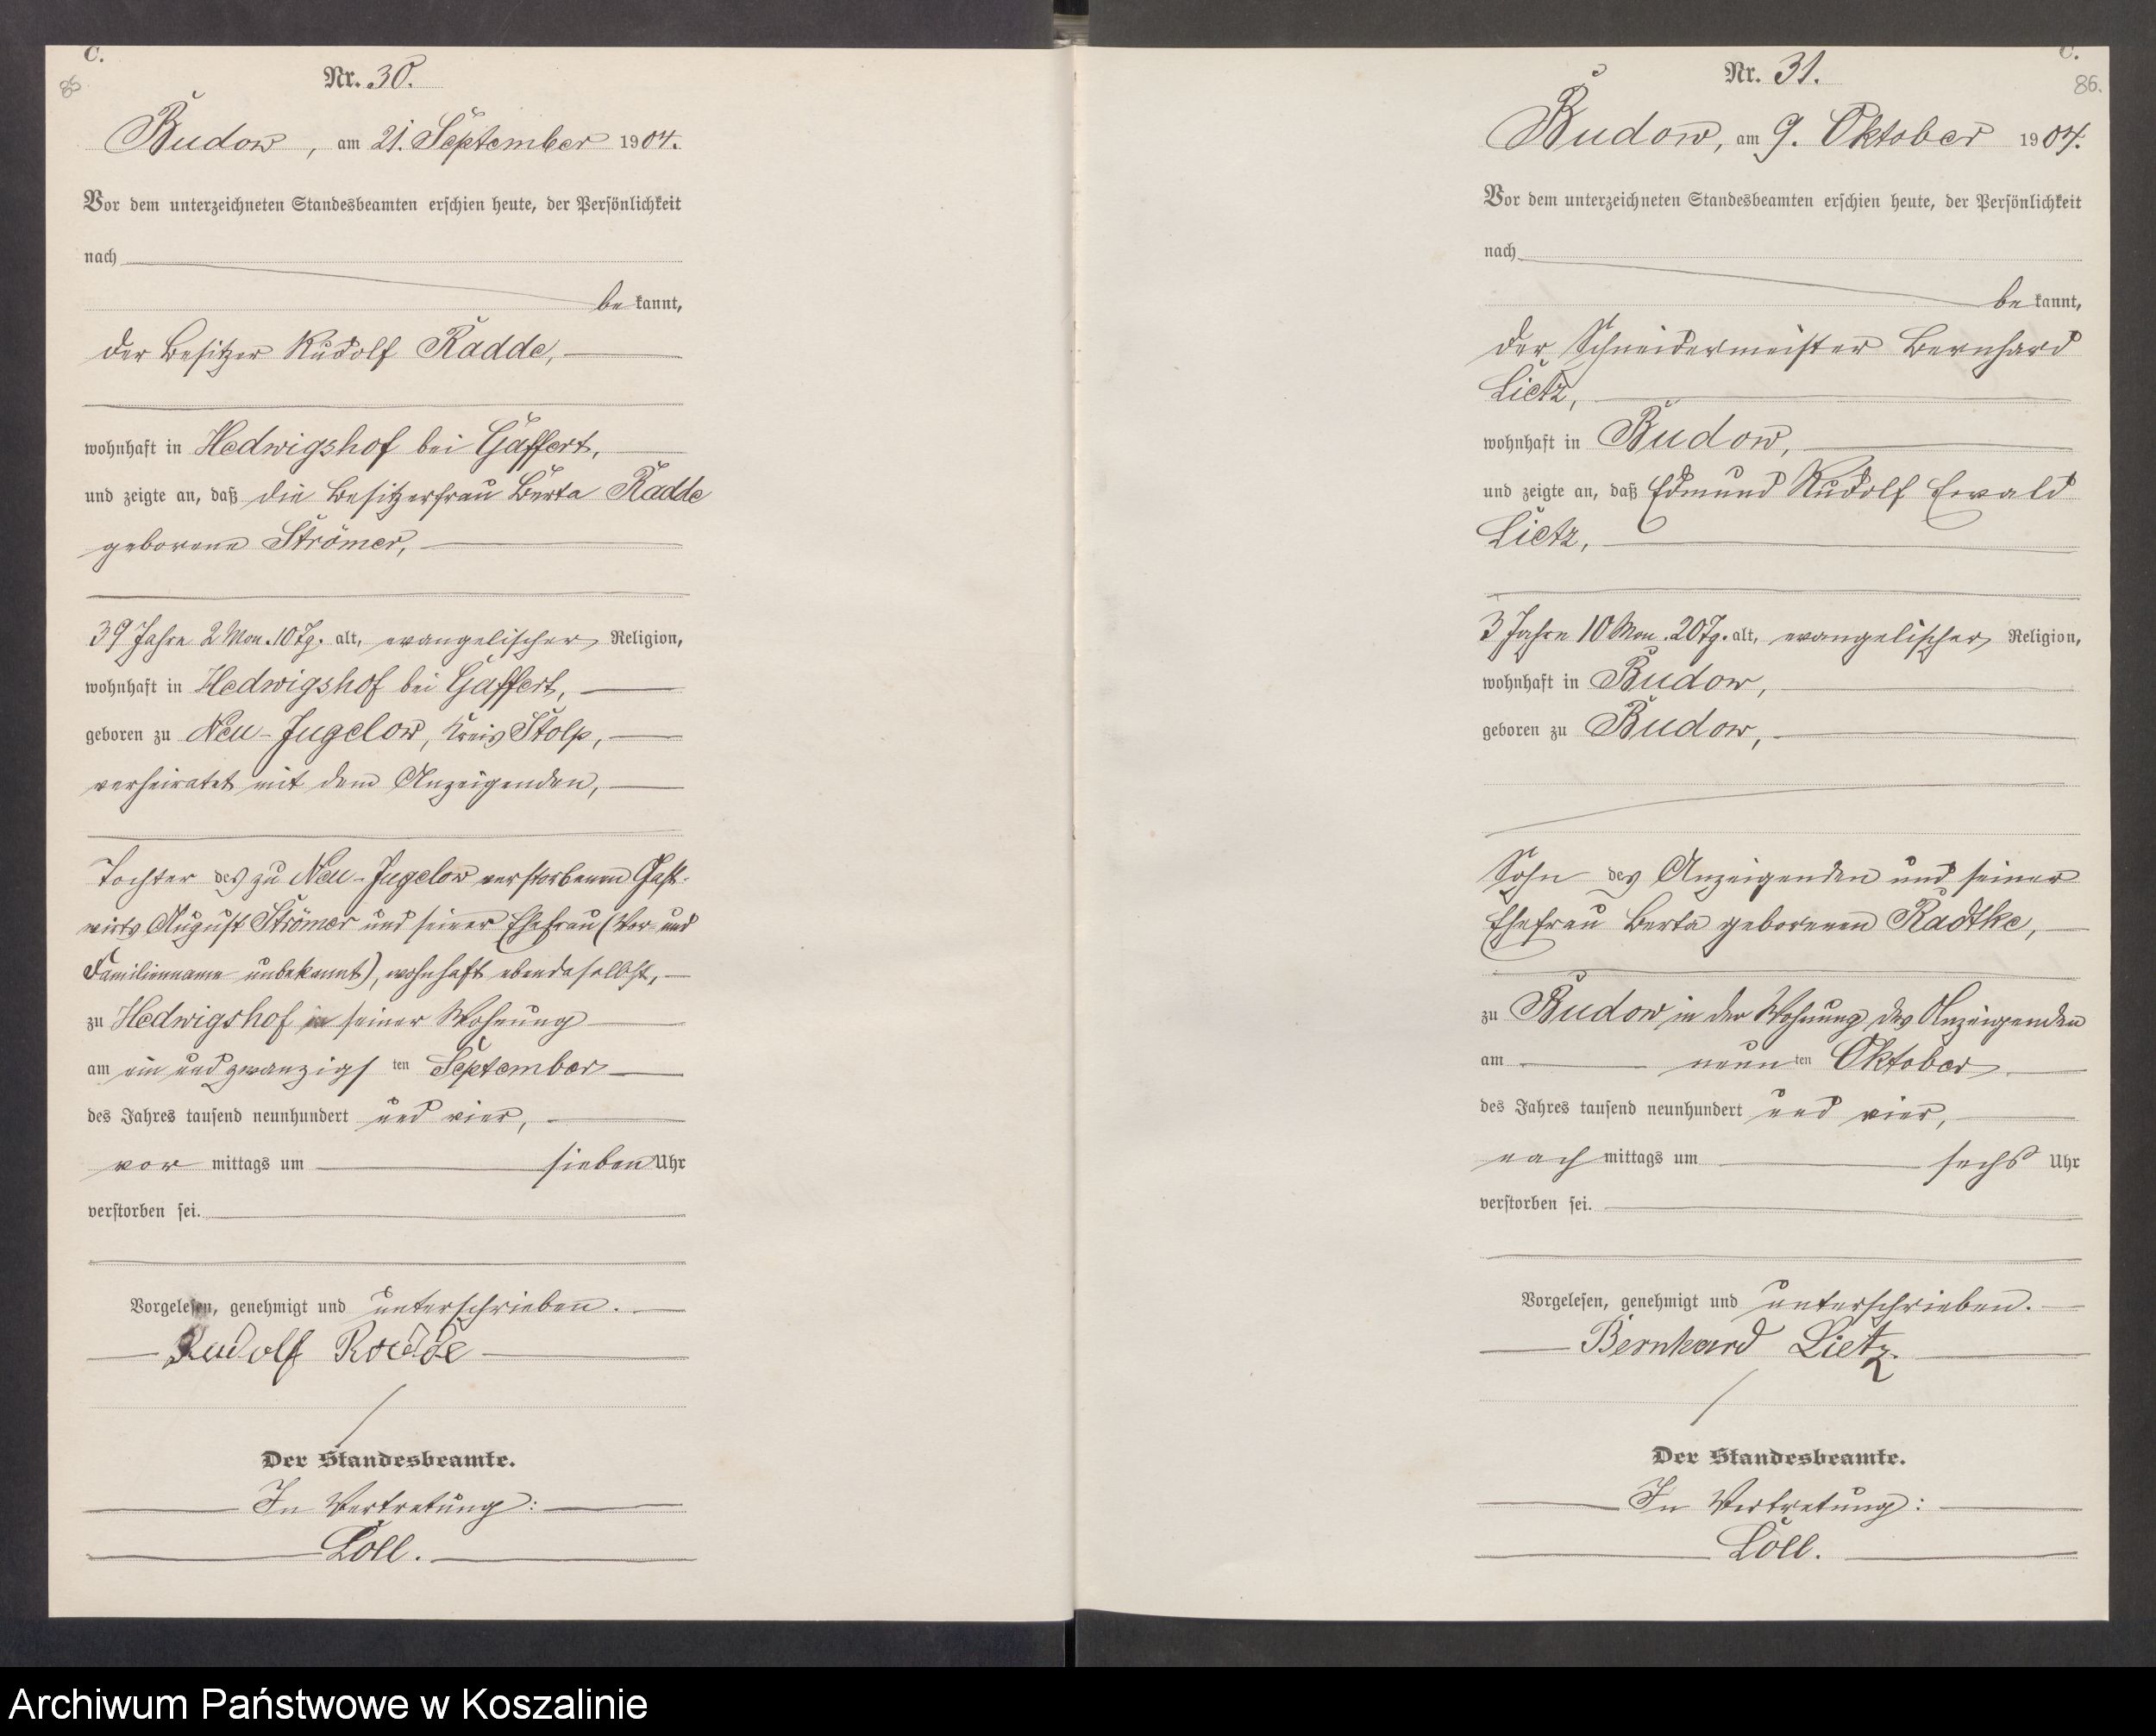 C.
85
Nr. 30.
Budow, am 21. September 1904.
Vor dem unterzeichneten Standesbeamten erschien heute, der Persönlichkeit
nach
bekannt,
der Besitzer Rudolf Radde,
wohnhaft in Hedwigshof bei Gaffert,
und zeigte an, daß die Besitzerfrau Berta Radde
geborene Strömer,
39 Jahre 2 Mon. 10 Tg. alt, evangelischer Religion,
wohnhaft in Hedwigshof bei Gaffert,
geboren zu Neu-Jugelow, Kreis Stolp,
verheiratet mit dem Anzeigenden,
Tochter des zu Neu-Jugelow verstorbenen Gast-
wirts August Strömer und seiner Ehefrau (Vor- und
Familienname unbekannt), wohnhaft ebendaselbst,
zu Hedwigshof in seiner Wohnung
am ein und zwanzigsten September
des Jahres tausend neunhundert und vier,
vormittags um sieben Uhr
verstorben sei.
Vorgelesen, genehmigt und unterschrieben.
Rudolf Radde
Der Standesbeamte.
In Vertretung:
Löll.
C.
86.
Nr. 31.
Budow, am 9. Oktober 1904.
Vor dem unterzeichneten Standesbeamten erschien heute, der Persönlichkeit
nach
bekannt,
der Schneidermeister Bernhard
Lietz,
wohnhaft in Budow,
und zeigte an, daß Edmund Rudolf Ewald
Lietz,
3 Jahre 10 Mon. 20 Tg. alt, evangelischer Religion,
wohnhaft in Budow,
geboren zu Budow,
Sohn des Anzeigenden und seiner
Ehefrau Berta geborenen Radtke,
zu Budow in der Wohnung des Anzeigenden
am neunten Oktober
des Jahres tausend neunhundert und vier,
nachmittags um sechs Uhr
verstorben sei.
Vorgelesen, genehmigt und unterschrieben.
Bernhard Lietz.
Der Standesbeamte.
In Vertretung:
Löll.
Archiwum Państwowe w Koszalinie